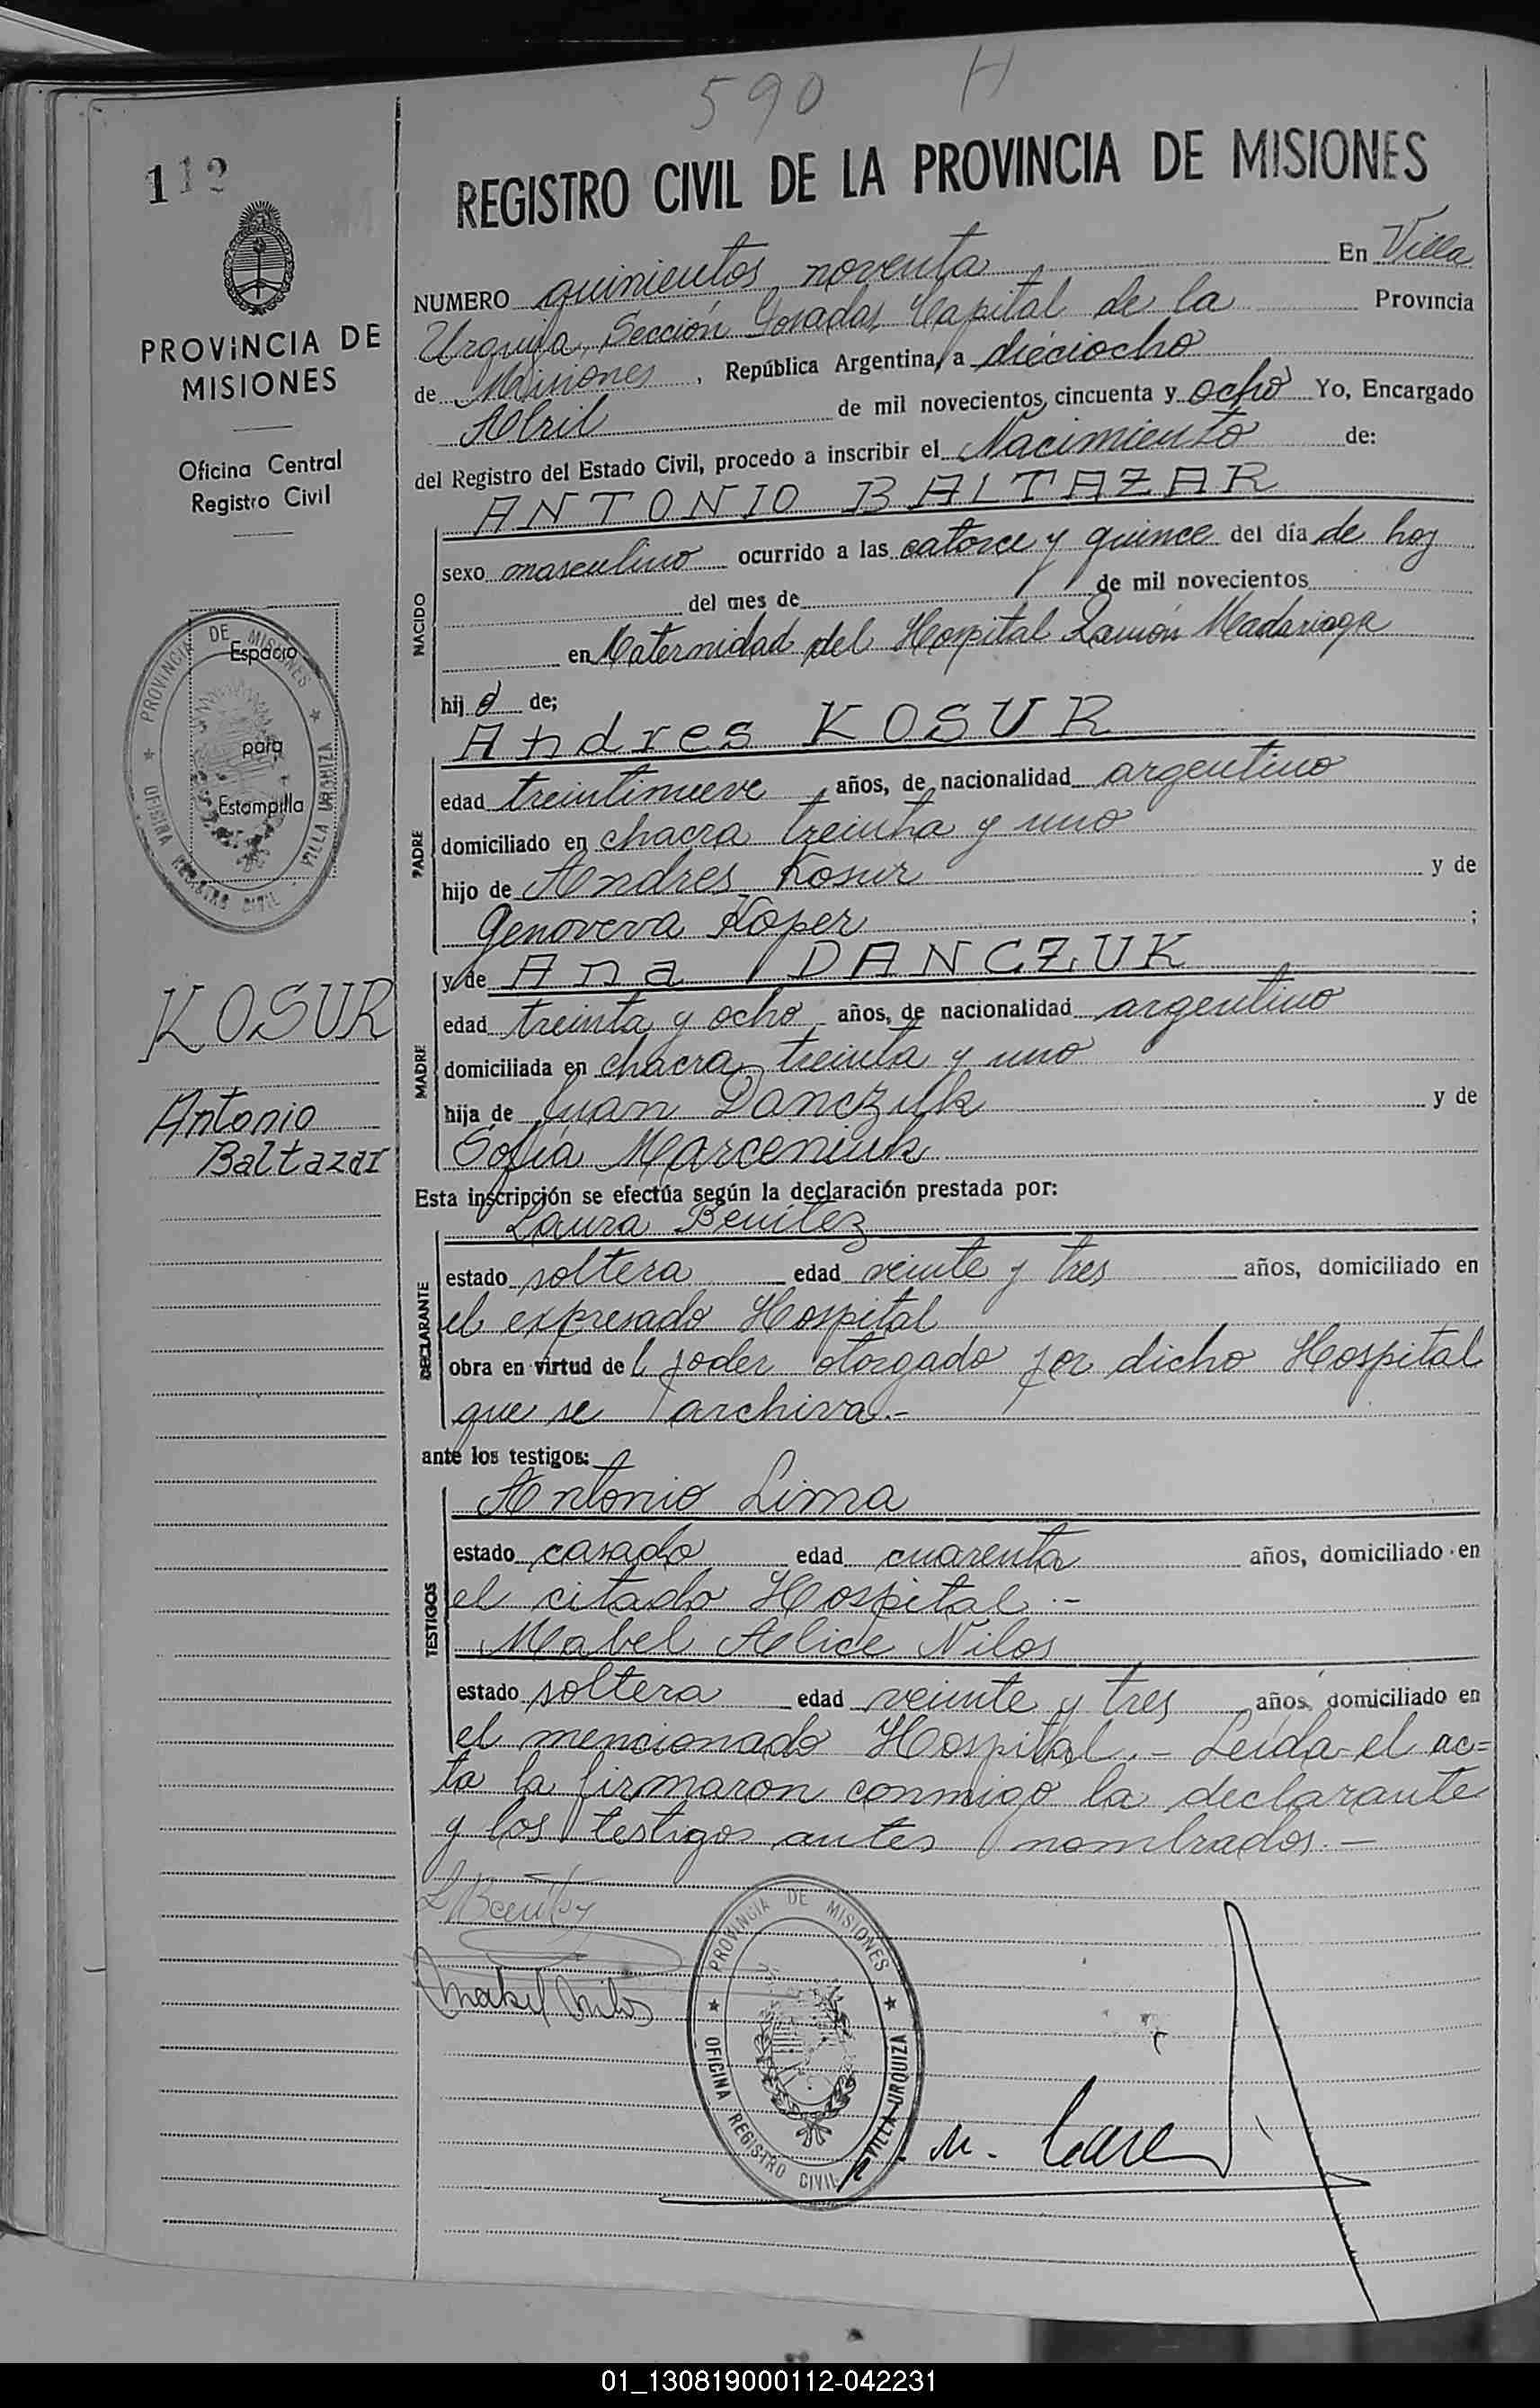 590 H
112
REGISTRO CIVIL DE LA PROVINCIA DE MISIONES
PROVINCIA DE
MISIONES
Oficina Central
Registro Civil
PROVINCIA DE MISIONES
OFICINA REGISTRO CIVIL - VILLA URQUIZA
Espacio
para
Estampilla
KOSUR
Antonio
Baltazar
NUMERO quinientos noventa En Villa
Urquiza, Sección Posadas, Capital de la Provincia
de Misiones, República Argentina, a dieciocho
Abril de mil novecientos cincuenta y ocho Yo, Encargado
del Registro del Estado Civil, procedo a inscribir el Nacimiento de:
ANTONIO BALTAZAR
NACIDO
sexo masculino ocurrido a las catorce y quince del día de hoy
del mes de de mil novecientos
en Maternidad del Hospital Ramón Madariaga
hij o de;
Andres KOSUR
PADRE
edad treintinueve años, de nacionalidad argentino
domiciliado en chacra treinta y uno
hijo de Andres Kosur y de
Genoveva Koper ;
y de Ana DANCZUK
MADRE
edad treinta y ocho años, de nacionalidad argentino
domiciliada en chacra treinta y uno
hija de Juan Danczuk y de
Sofia Marceniuk
Esta inscripción se efectúa según la declaración prestada por:
Laura Benitez
DECLARANTE
estado soltera edad veinte y tres años, domiciliado en
el expresado Hospital
obra en virtud de l poder otorgado por dicho Hospital
que se archiva.-
ante los testigos:
Antonio Lima
TESTIGOS
estado casado edad cuarenta años, domiciliado en
el citado Hospital.-
Mabel Alice Nilos
estado soltera edad veinte y tres años, domiciliado en
el mencionado Hospital.- Leída el ac=
ta la firmaron conmigo la declarante
y los testigos antes nombrados.-
L Benitez
Mabel Nilos
PROVINCIA DE MISIONES
OFICINA REGISTRO CIVIL VILLA URQUIZA
01_130819000112-042231